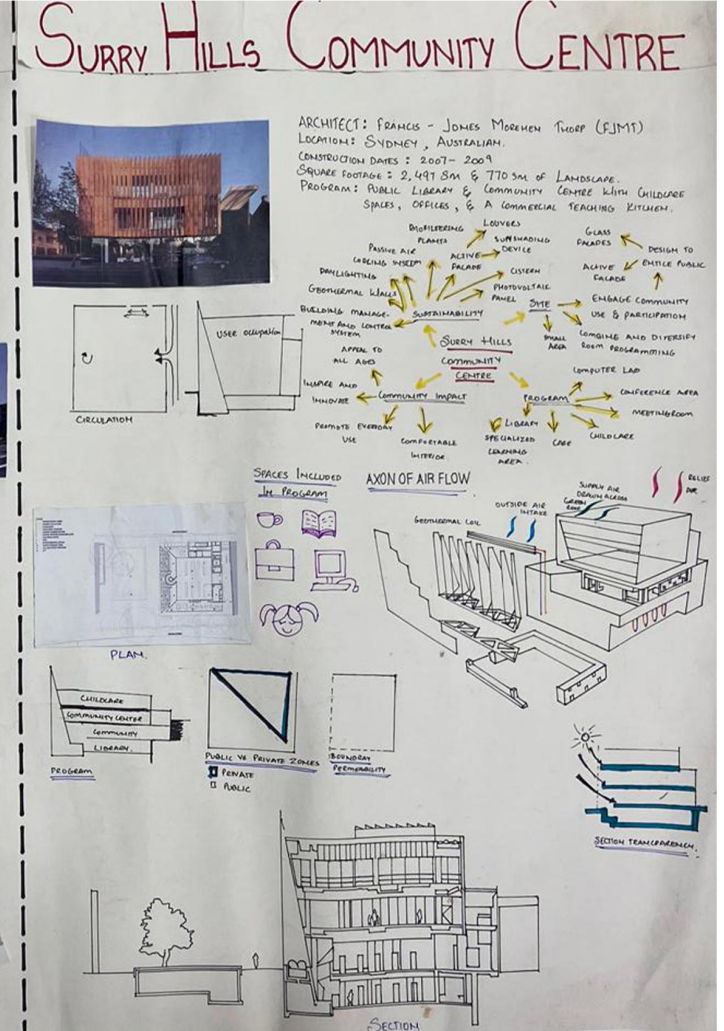 SURRY HILLS COMMUNITY CENTRE
ARCHITECT: FRANCIS - JONES MOREHEN THORP (FJMT)
LOCATION: SYDNEY, AUSTRALIAN.
CONSTRUCTION DATES: 2007-2009
SQUARE FOOTAGE: 2,497 SM & 770 SM OF LANDSCAPE.
PROGRAM: PUBLIC LIBRARY & COMMUNITY CENTRE WITH CHILDCARE
SPACES, OFFICES, & A COMMERCIAL TEACHING KITCHEN.
BIOFILTERING
PLANTS
LOUVERS
SUNSHADING
DEVICE
ACTIVE
FACADE
PASSIVE AIR
COOLING SYSTEM
DAYLIGHTING
GEOTHERMAL WALLS
BUILDING MANAGE-
MENT AND CONTROL
SYSTEM
CISTERN
PHOTOVOLTAIC
PANEL
SUSTAINABILITY
GLASS
FACADES
DESIGN TO
ENTICE PUBLIC
ACTIVE
FACADE
SITE
ENGAGE COMMUNITY
USE & PARTICIPATION
SMALL
AREA
COMBINE AND DIVERSIFY
ROOM PROGRAMMING
SURRY HILLS
COMMUNITY
CENTRE
APPEAL TO
ALL AGES
INSPIRE AND
INNOVATE
COMMUNITY IMPACT
PROMOTE EVERYDAY
USE
COMFORTABLE
INTERIOR.
PROGRAM
COMPUTER LAB
CONFERENCE AREA
MEETINGROOM
CHILDCARE
CAFE
LIBRARY
SPECIALIZED
LEARNING
AREA.
USER OCCUPATION
CIRCULATION
SPACES INCLUDED
IN PROGRAM
AXON OF AIR FLOW
GEOTHERMAL COIL
OUTSIDE AIR
INTAKE
SUPPLY AIR
DRAWN ACROSS
GREEN
ROOF
RELIEF
PLAN.
CHILDCARE
COMMUNITY CENTER
COMMUNITY
LIBRARY.
PROGRAM
PUBLIC VS PRIVATE ZONES
PRIVATE
PUBLIC
BOUNDRAY
PERMEABILITY
SECTION TRANCPARENCY.
SECTION